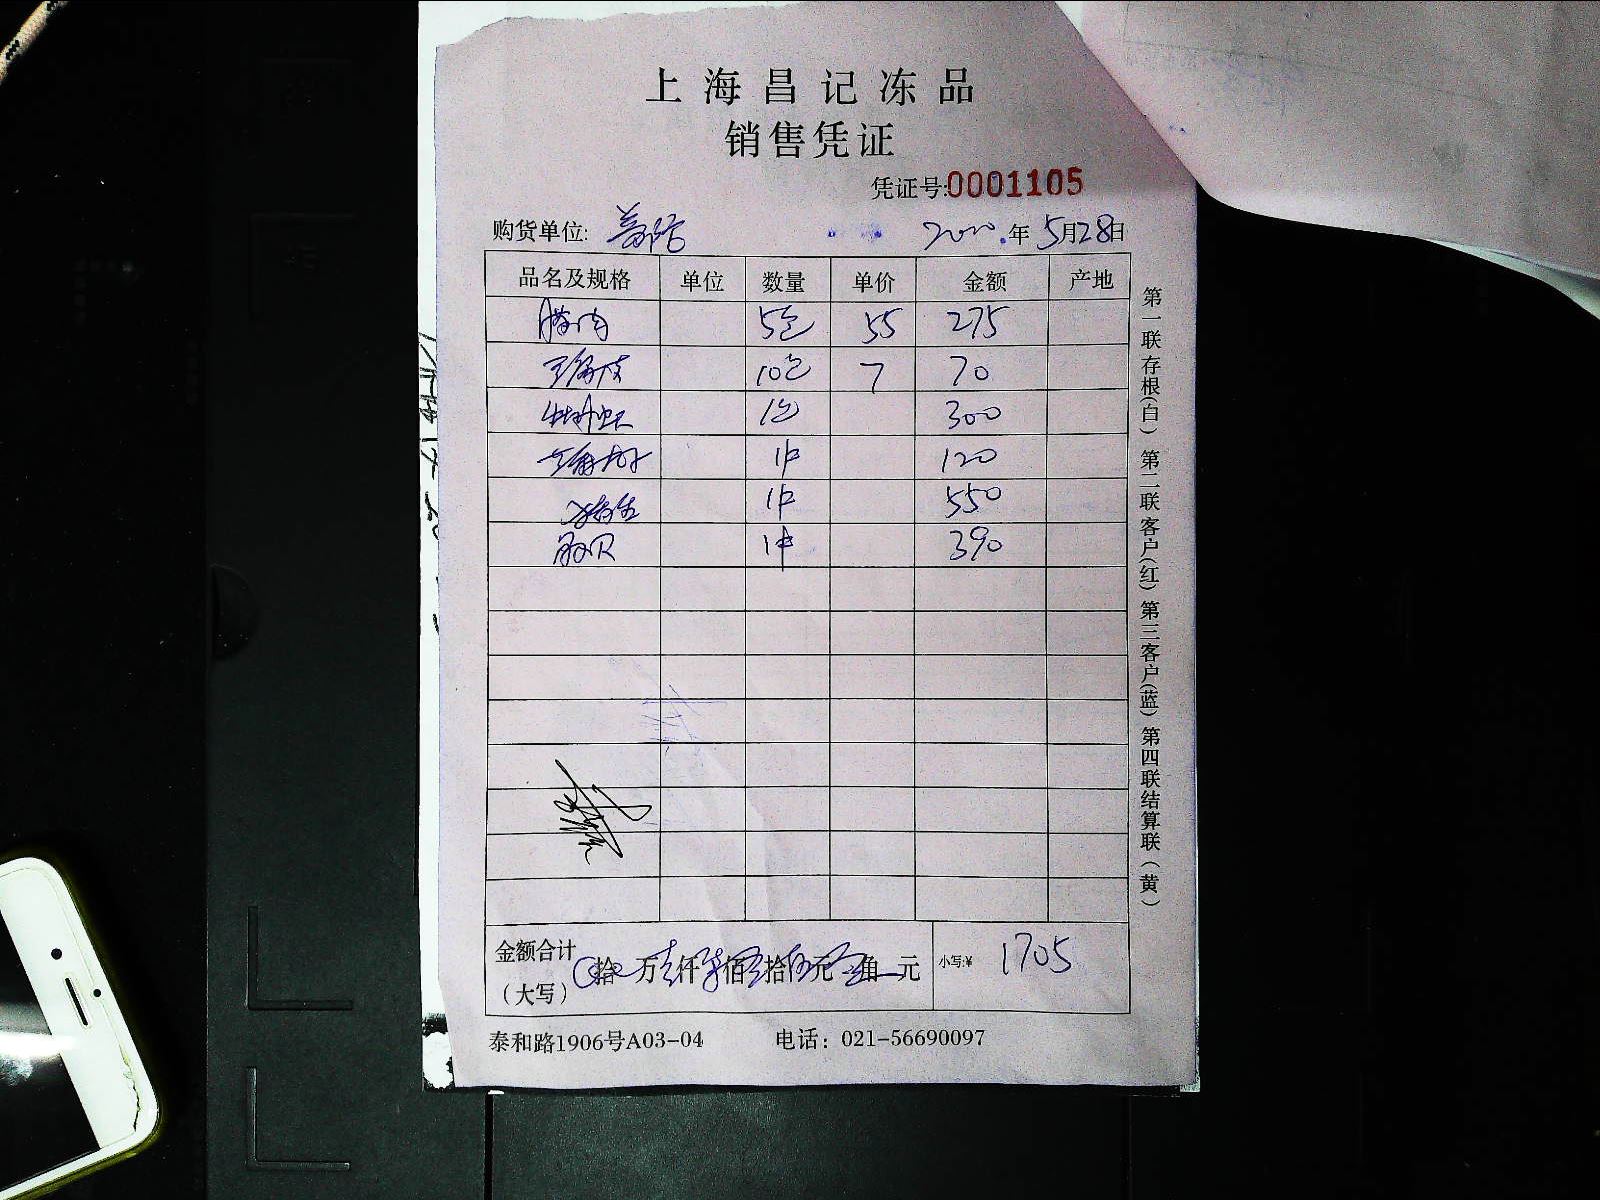 上海昌记冻品
销售凭证
凭证号:0001105
购货单位: 2020.年5月28日
品名及规格 单位 数量 单价 金额 产地
腊肉 5包 55 275
10包 7 70
1包 300
1件 120
1件 550
扇贝 1件 390
第一联存根(白) 第二联客户(红) 第三客户(蓝) 第四联结算联(黄)
金额合计
(大写) 拾 万壹仟柒佰 拾伍元 角 元 小写:¥ 1705
泰和路1906号A03-04 电话: 021-56690097